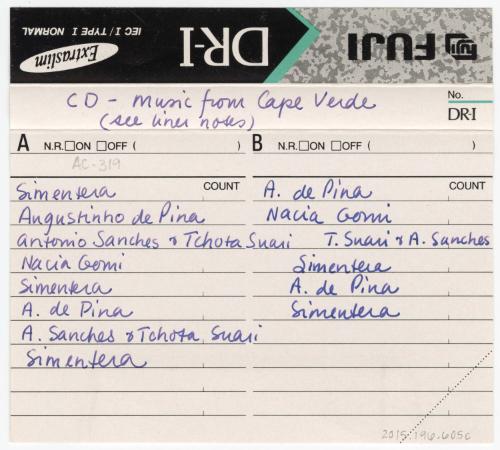 FUJI
DR-I
IEC I / TYPE I NORMAL
Extraslim
CD - Music from Cape Verde
(see liner notes)
No.
DR-I
A N.R. ON OFF ( )
B N.R. ON OFF ( )
AC-319
COUNT
Simentera
Angustinho de Pina
Antonio Sanches & Tchota Suari
Nacia Gomi
Simentera
A. de Pina
A. Sanches & Tchota Suari
Simentera
COUNT
A. de Pina
Nacia Gomi
T. Suari & A. Sanches
Simentera
A. de Pina
Simentera
2015.196.605c